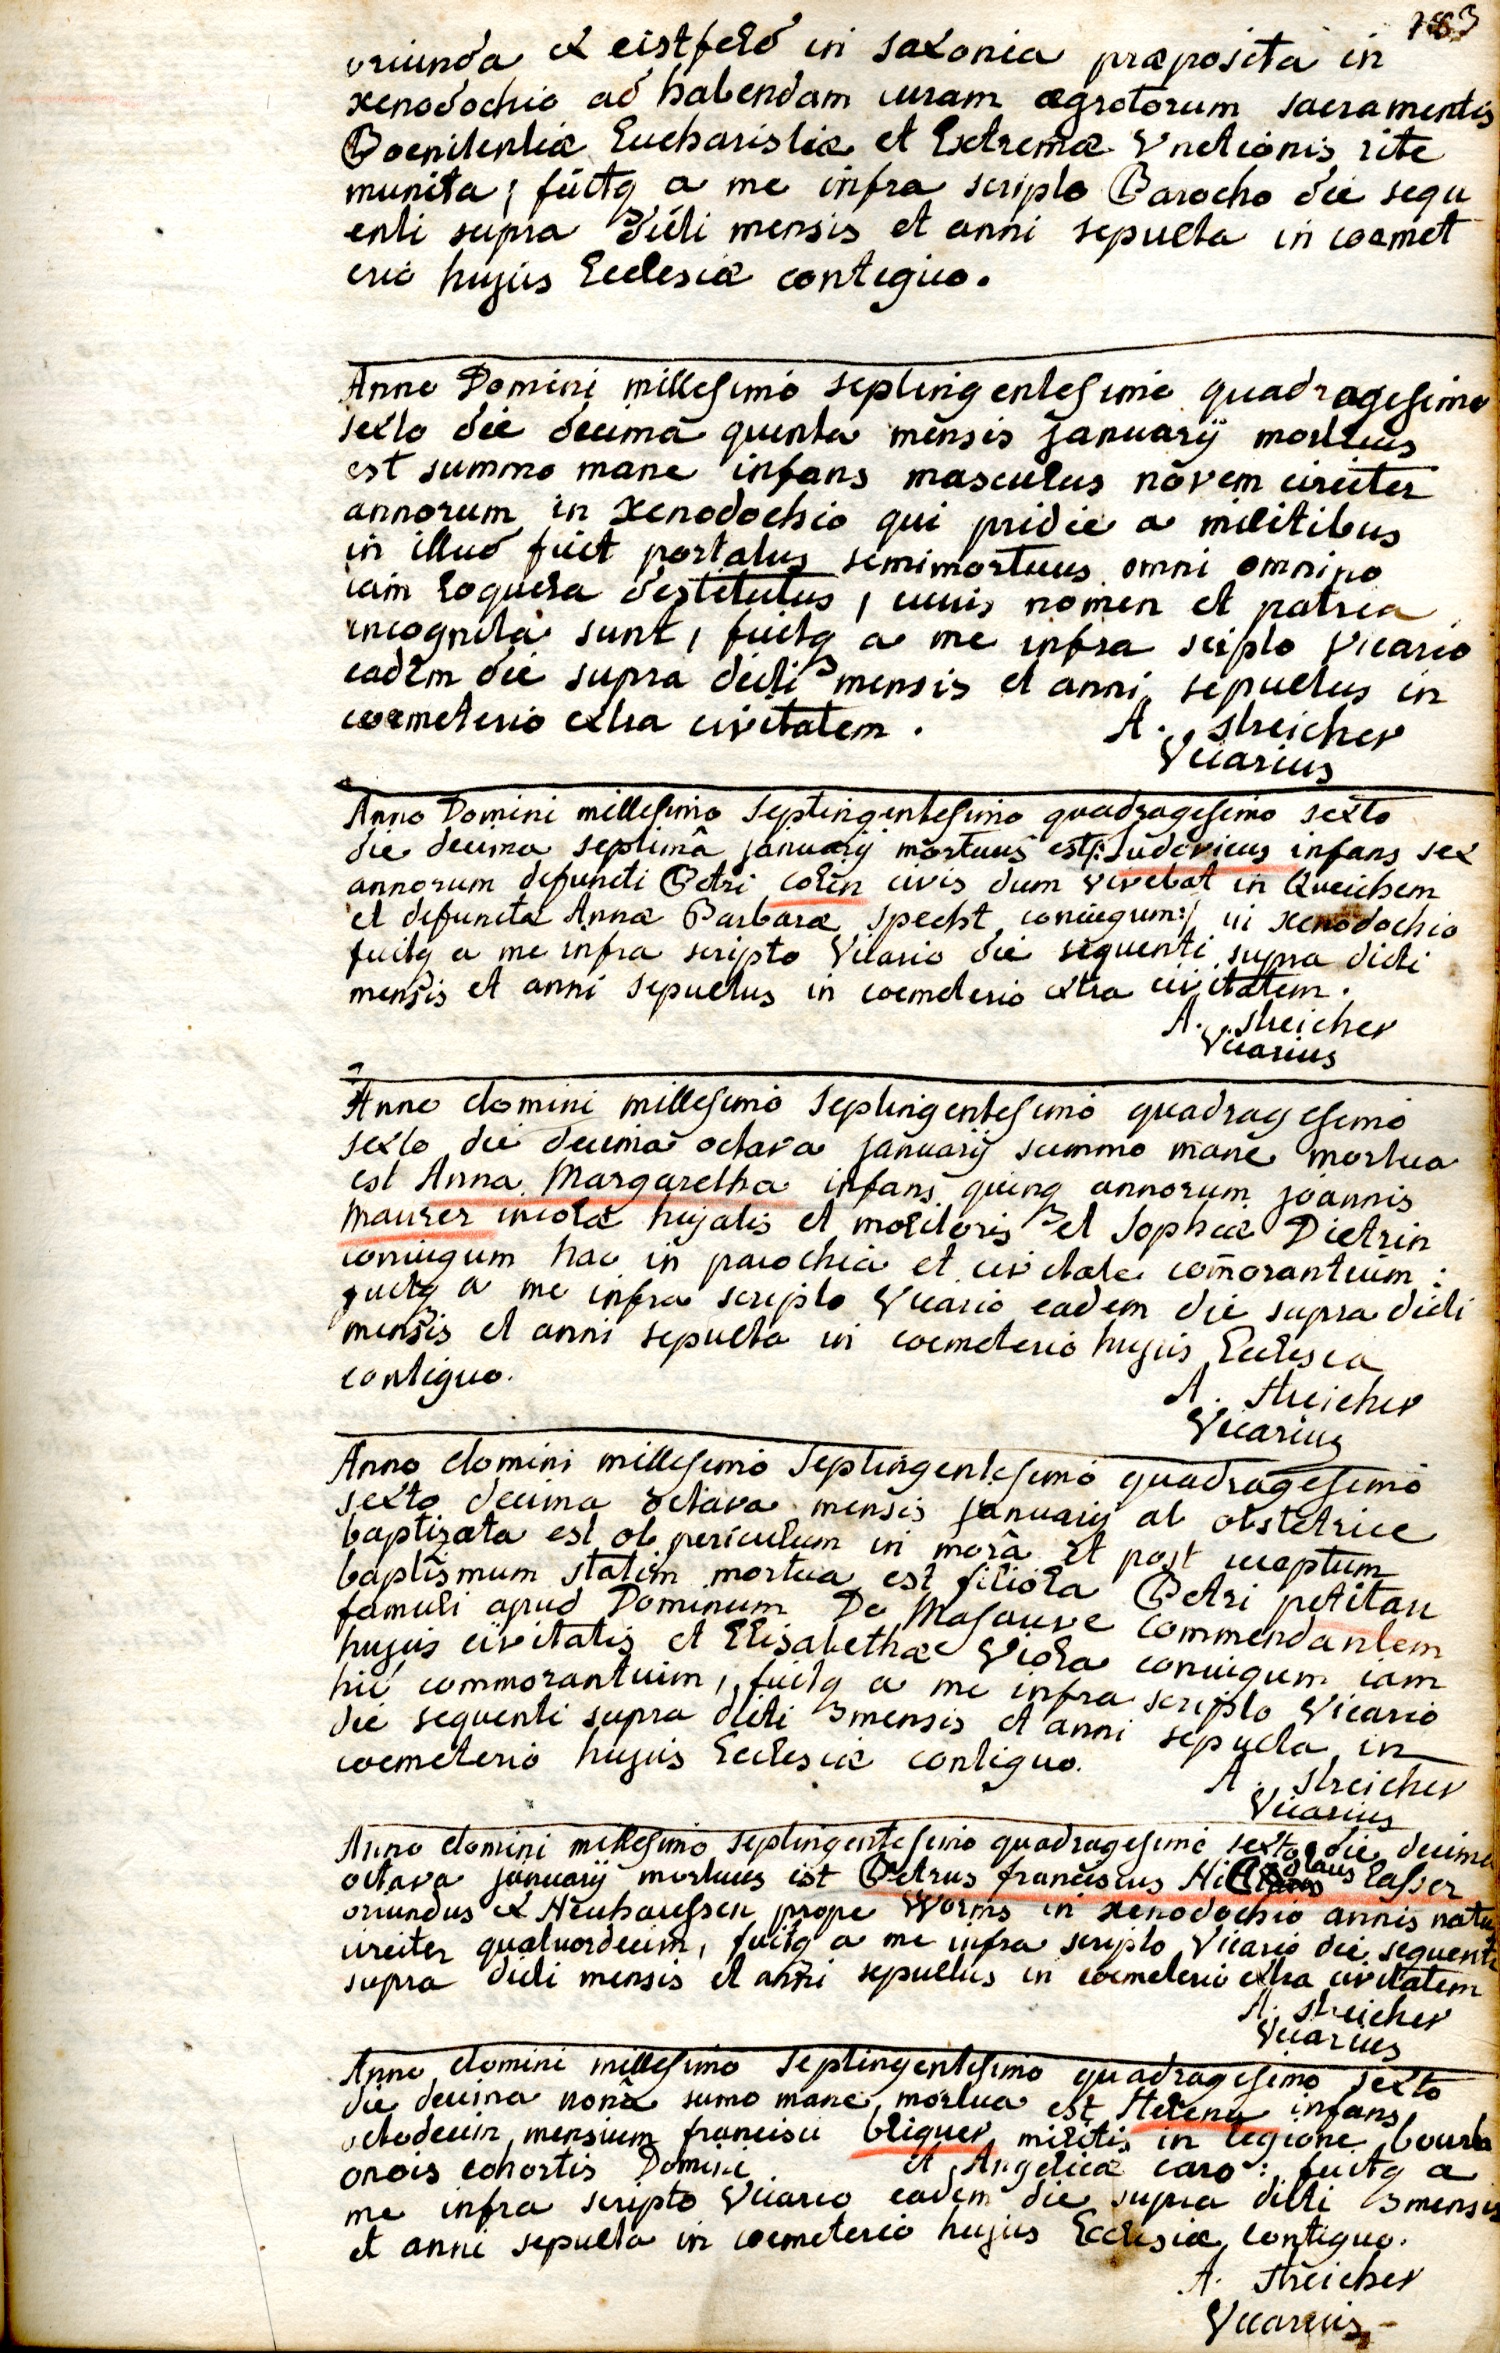 183
oriunda ex eistfeld in saxonia præposita in
xenodochio ad habendam curam ægrotorum sacramentis
Poenitentiæ Eucharistiæ et Extremæ Unctionis rite
munita, fuitq a me infra scripto Parocho die sequ
enti supra dicti mensis et anni sepulta in coemet
erio hujus Ecclesiæ contiguo.
Anno Domini millesimo septingentesimo quadragesimo
sexto die decima quinta mensis januarij mortuus
est summo mane infans masculus novem circiter
annorum in Xenodochio qui pridie a militibus
in illud fuit portatus semimortuus omni omnino
iam loquela destitutus, cuius nomen et patria
incognita sunt, fuitq a me infra scipto Vicario
eadem die supra dicti mensis et anni sepultus in
coemeterio extra civitatem.
A. Streicher
Vicarius
Anno Domini millesimo septingentesimo quadragesimo sexto
die decima septimâ januarij mortuus est /: Ludovicus infans sex
annorum defuncti Petri colin civis dum vivebat in Queichem
et defuncta Annæ Barbaræ Specht coniugum :/ in xenodochio
fuitq a me infra scripto Vicario die sequenti supra dicti
mensis et anni sepultus in coemeterio extra civitatem.
A. Streicher
Vicarius
Anno domini millesimo septingentesimo quadragesimo
sexto die decima octava januarij summo mane mortua
est Anna Margaretha infans quinq annorum joannis
Maurer incolæ hujatis et molitoris et Sophiæ Dietrin
coniugum hac in parochia et civitate com̄orantium:
fuitq a me infra scripto Vicario eadem die supra dicti
mensis et anni sepulta in coemeterio hujus Ecclesia
contiguo.
A. Streicher
Vicarius
Anno domini millesimo septingentesimo quadragesimo
sexto decima octava mensis januarij ab obstetrice
baptizata est ob periculum in morâ et post ucaptum
baptismum statim mortua est filiola Petri petitau
famuli apud Dominum De Masauve commendantem
hujus civitatis et Elisabethæ Viola coniugum iam
hic commorantuim, fuitq a me infra scripto Vicario
die sequenti supra dicti mensis et anni sepulta in
coemeterio hujus Ecclesiæ contiguo.
A. Streicher
Vicarius
Anno domini millesimo septingentesimo quadragesimo sexto die decima
octava januarij mortuus est Petrus franciscus Nicolaus lasser
oriundus ex Neuhaussen prope Worms in xenodochio annis natu
circiter quatuordecim, fuitq a me infra scripto Vicario die sequenti
supra dicti mensis et anni sepultus in coemeterio extra civitatem
A. Streicher
Vicarius
Anno domini millesimo septingentesimo quadragesimo sexto
die decima nonâ sumo mane mortua est Helena infans
octodecim mensium francisci bliquer militis in legione bourb
onois cohortis Domini et Angelicæ caro: fuitq a
me infra scripto Vicario eadem die supra dicti mensis
et anni sepulta in coemeterio hujus Ecclesiæ contiguo.
A. Streicher
Vicarius